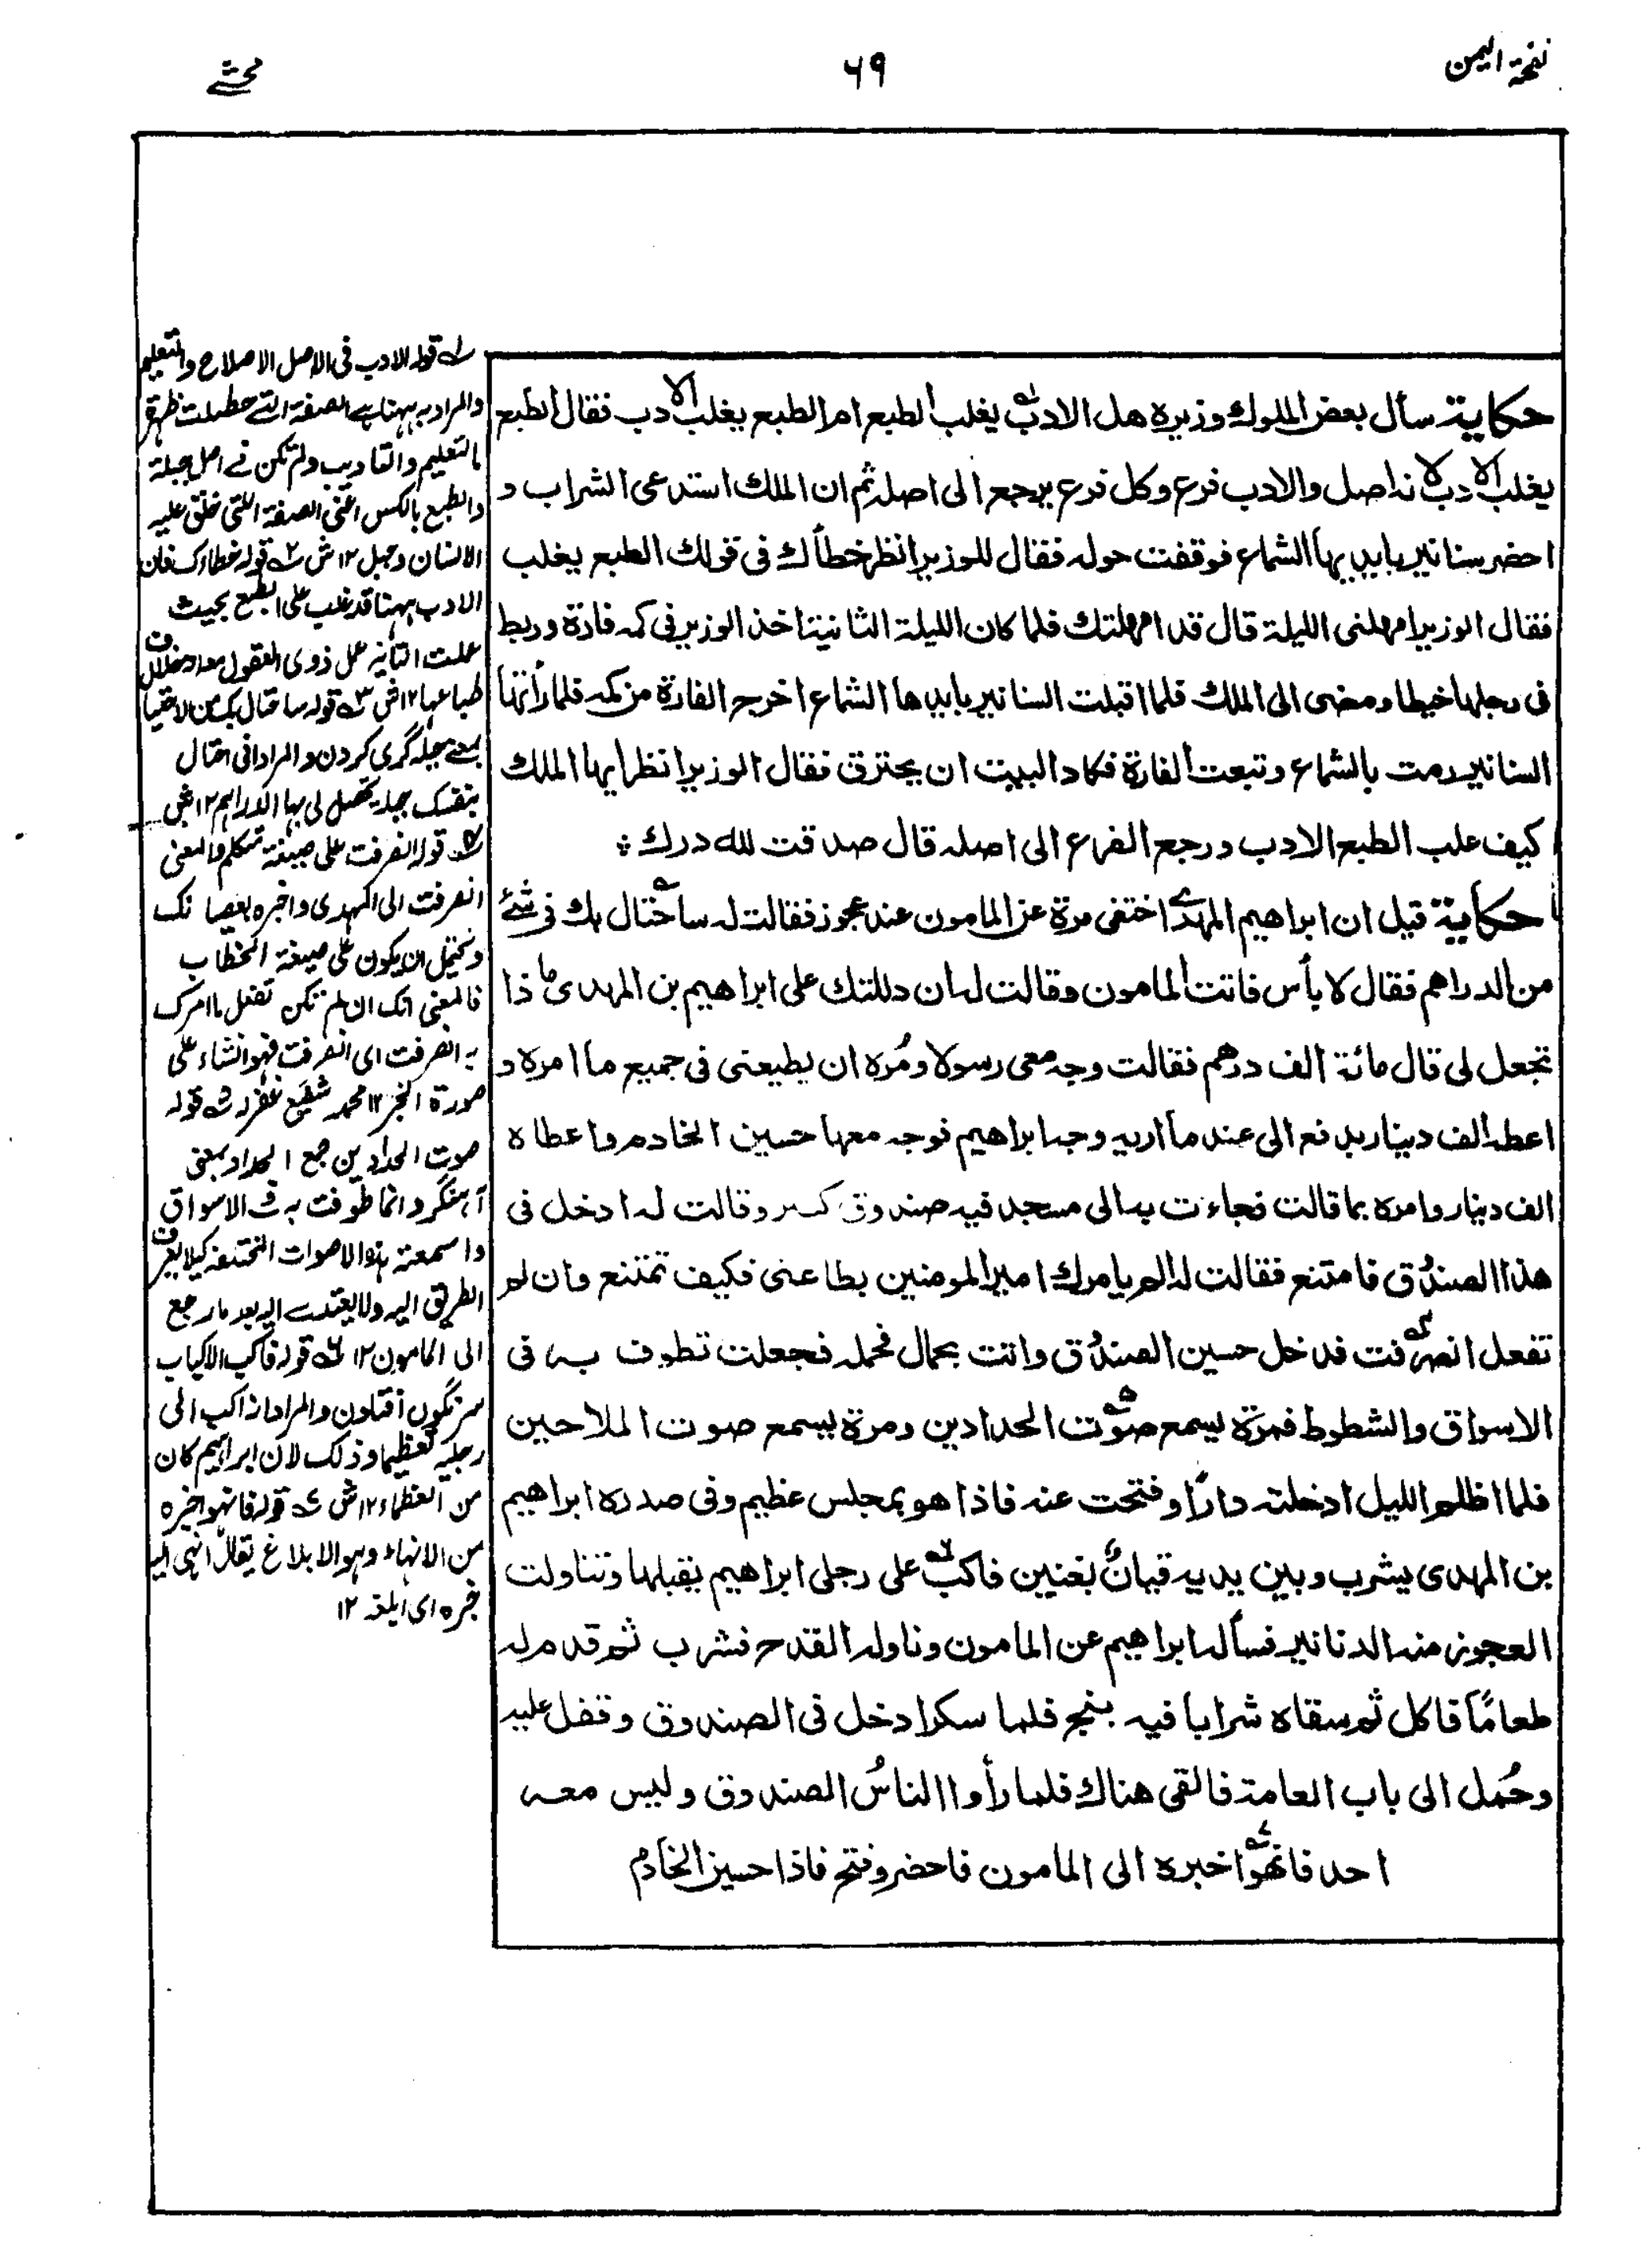 نفحة اليمن
٦٩
محشے
حكاية سأل بعض الملوك وزيره هل الادب يغلب الطبع ام الطبع يغلب الادب فقال الطبع
يغلب الادب لانه اصل والادب فرع وكل فرع يرجع الى اصله ثم ان الملك استدعى الشراب و
احضر سنانير بايديها الشماع فوقفت حوله فقال للوزير انظر خطأك فى قولك الطبع يغلب
فقال الوزير امهلنى الليلة قال قد امهلتك فلما كان الليلة الثانية اخذ الوزير فى كمه فارة وربط
فى رجلها خيطا ومضى الى الملك فلما اقبلت السنانير بايديها الشماع اخرج الفارة من كمه فلما رأتها
السنانير رمت بالشماع وتبعت الفارة فكاد البيت ان يحترق فقال الوزير انظر ايها الملك
كيف غلب الطبع الادب ورجع الفرع الى اصله قال صدقت لله درك ؞
حكاية قيل ان ابراهيم المهدى اختفى مرة عن المامون عند عجوز فقالت له ساحتال بك فى شئ
من الدراهم فقال لا بأس فاتت المامون وقالت له ان دللتك على ابراهيم بن المهدى ما ذا
تجعل لى قال مائة الف درهم فقالت وجه معى رسولا ومُره ان يطيعنى فى جميع ما امره و
اعطه الف دينار يدفع الى عند ما اريه وجه ابراهيم فوجه معها حسين الخادم واعطاه
الف دينار وامره بما قالت فجاءت به الى مسجد فيه صندوق كبير وقالت له ادخل فى
هذا الصندُق فامتنع فقالت له الم يامرك امير المومنين بطاعنى فكيف تمتنع وان لم
تفعل انصرفت فدخل حسين الصندُق واتت بحمال فحمله فجعلت تطوف به فى
الاسواق والشطوط فمرّة يسمع صَوت الحدادين ومرة يسمع صوت الملاحين
فلما اظلم الليل ادخلته دارًا وفتحت عنه فاذا هو بمجلس عظيم وفى صدره ابراهيم
بن المهدى يشرب وبين يديه قيانٌ يغنين فاكب على رجلى ابراهيم يقبلها وتناولت
العجوز منه الدنانير فسأله ابراهيم عن المامون وناوله القدح فشرب ثم قدم له
طعامًا فاكل ثم سقاه شرابا فيه بنج فلما سكر ادخل فى الصندوق وقفل عليه
وحُمل الى باب العامة فالقى هناك فلما رأوا الناسُ الصندوق وليس معه
احد فانهوا خبره الى المامون فاحضر وفتح فاذا حسين الخادم
له قوله الادب فى الاصل الاصلاح والتعليم
والمراد به ههنا هے الصفة التے حصلت
بالتعليم والتاديب ولم تكن فے اصل جبلة
والطبع بالعكس اعنى الصفة اللتى خلق عليه
الانسان وجبل ١٢ ش ٢ه قوله خطاءك فان
الادب ههنا قد غلب على الطبع بحيث
عملت السنانير عمل ذوى العقول
طباعها ١٢ ش ٣ه قوله ساحتال بك من الاحتيال
بمعنے حيله گرى كردن والمراد انى احتال
بنفسك حيلة يحصل لى بها الدراهم ١٢ ش
٤ه قوله انصرفت على صيغة متكلم والمعنى
انصرفت الى المهدى واخبره بعصيانك
ويحتمل ان يكون على صيغة الخطاب
فالمعنى انك ان لم تكن تفعل ما امرك
به انصرفت اى انصرفت فهو انشاء على
صورة الخبر ١٢ محمد شفيع غفرله ٥ه قوله
صوت الحدادين جمع الحداد بمعنى
آہنگر وانما طوفت به فے الاسواق
واسمعته هذه الاصوات المختلفة كيلا يعرف
الطريق اليه ولا يهتدے اليه بعد ما رجع
الى المامون ١٢ ٦ه قوله فاكب الاكباب
سرنگوں افتادن والمراد اذ اكب الى
رجليه تعظيما وذلك لان ابراهيم كان
من العظماء ١٢ ش ٧ه قوله فانهوا خبره
من الانهاء وهو الابلاغ يقال انهى اليه
خبره اى ابلغه ١٢